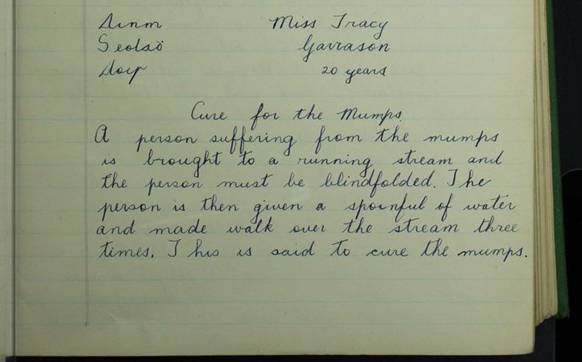 Ainm Miss Tracy
Seoladh Garrason
Aois 20 years
Cure for the Mumps.
A person suffering from the mumps
is brought to a running stream and
the person must be blindfolded. The
person is then given a spoonful of water
and made walk over the stream three
times. This is said to cure the mumps.